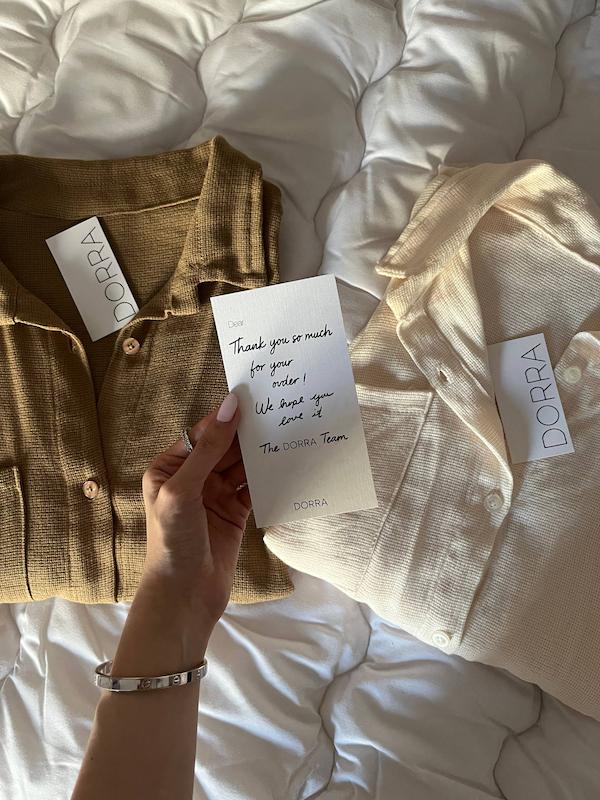 DORRA
Dear
Thank you so much
for your
order!
We hope you
love it
The DORRA Team
DORRA
DORRA